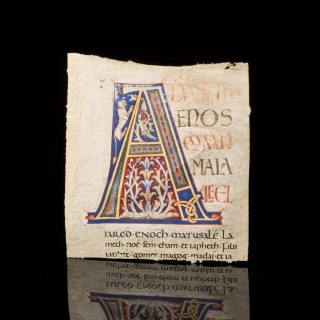 ADA SETH
ENOS
CAINAN
MALA
LEEL
IARED ENOCH MATUSALÉ LA
mech noè sem cham et iapheth Filii
iapheth gomer magog madai et ia